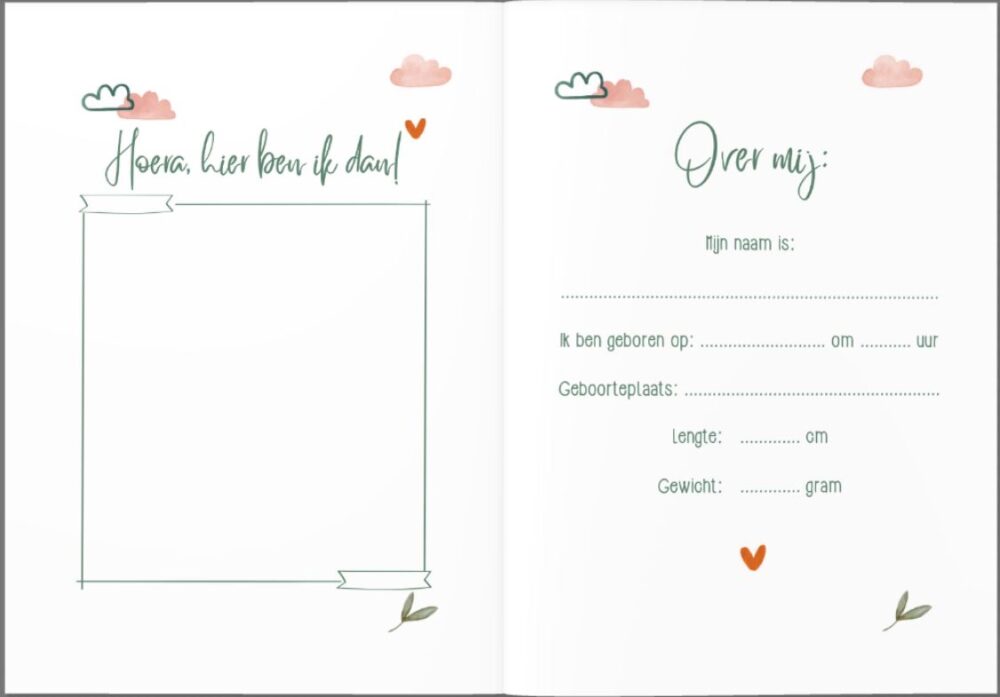 Hoera, hier ben ik dan!
Over mij:
Mijn naam is:
................................................................................................
Ik ben geboren op: .......................... om ........... uur
Geboorteplaats: ......................................................
Lengte: ............. cm
Gewicht: ............. gram